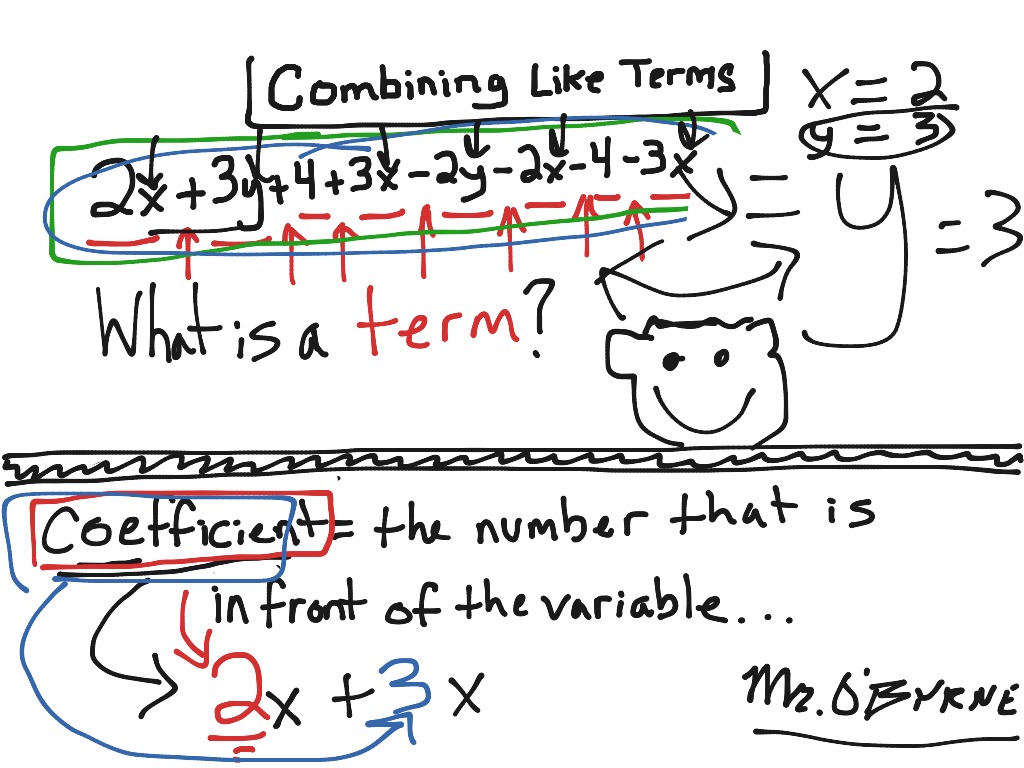 Combining Like Terms
x = 2
y = 3
2x + 3y + 4 + 3x - 2y - 2x - 4 - 3x = y = 3
What is a term?
Coefficient = the number that is
in front of the variable...
2x + 3x
Mr. O'Byrne